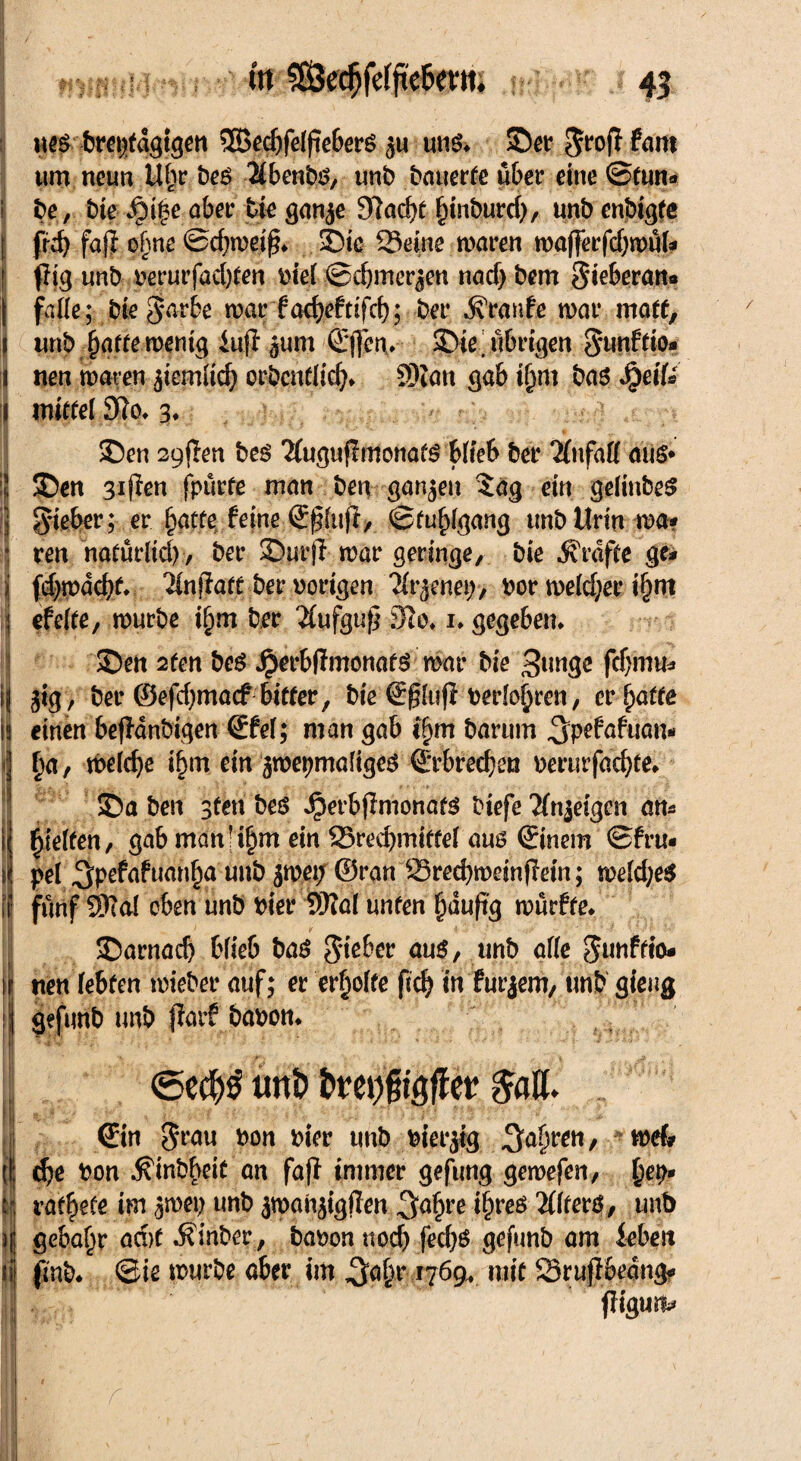 in Wechselfiebern. 43
nes dreytägigen Wechselfiebers zu uns. Der Frost kam
um neun Uhr des Abends, und dauerte über eine Stun-
de, die Hitze aber die ganze Nacht hindurch, und endigte
sich fast ohne Schweiß. Die Beine waren wasserschwül-
stig und verursachten viel Schmerzen nach dem Fieberan-
falle; die Farbe war kachektisch; der Kranke war matt,
und hatte wenig Lust zum Essen. Die übrigen Funktio-
nen waren ziemlich ordentlich. Man gab ihm das Heil-
mittel No. 3.
Den 29sten des Augustmonats blieb der Anfall aus.
Den 31sten spürte man den ganzen Tag ein gelindes
Fieber; er hatte keine Eßlust, Stuhlgang und Urin wa-
ren natürlich, der Durst war geringe, die Kräfte ge-
schwächt. Anstatt der vorigen Arzeney, vor welcher ihm
ekelte, wurde ihm der Aufguß No. 1. gegeben.
Den 2ten des Herbstmonats war die Zunge schmu-
zig, der Geschmack bitter, die Eßlust verlohren, er hatte
einen beständigen Ekel; man gab ihm darum Ipekakuan-
ha, welche ihm ein zweymaliges Erbrechen verursachte.
Da den 3ten des Herbstmonats diese Anzeigen an-
hielten, gab man ihm ein Brechmittel aus Einem Skru-
pel Ipekakuanha und zwey Gran Brechweinstein; welches
fünf Mal oben und vier Mal unten häufig würkte.
Darnach blieb das Fieber aus, und alle Funktio-
nen lebten wieder auf; er erholte sich in kurzem, und gieng
gesund und stark davon.
Sechs und dreyßigster Fall.
Ein Frau von vier und vierzig Jahren, wel-
che von Kindheit an fast immer gesung gewesen, hey-
rathete im zwey und zwanzigsten Jahre ihres Alters, und
gebahr acht Kinder, davon noch sechs gesund am Leben
sind. Sie wurde aber im Jahr 1769. mit Brustbeäng-
stigun-